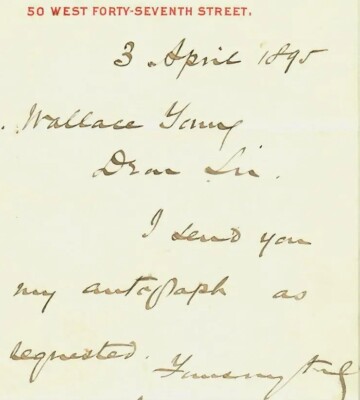 50 WEST FORTY-SEVENTH STREET.
3 April 1895
. Wallace Young
Dear Sir.
I send you
my autograph as
requested.
Yours very truly